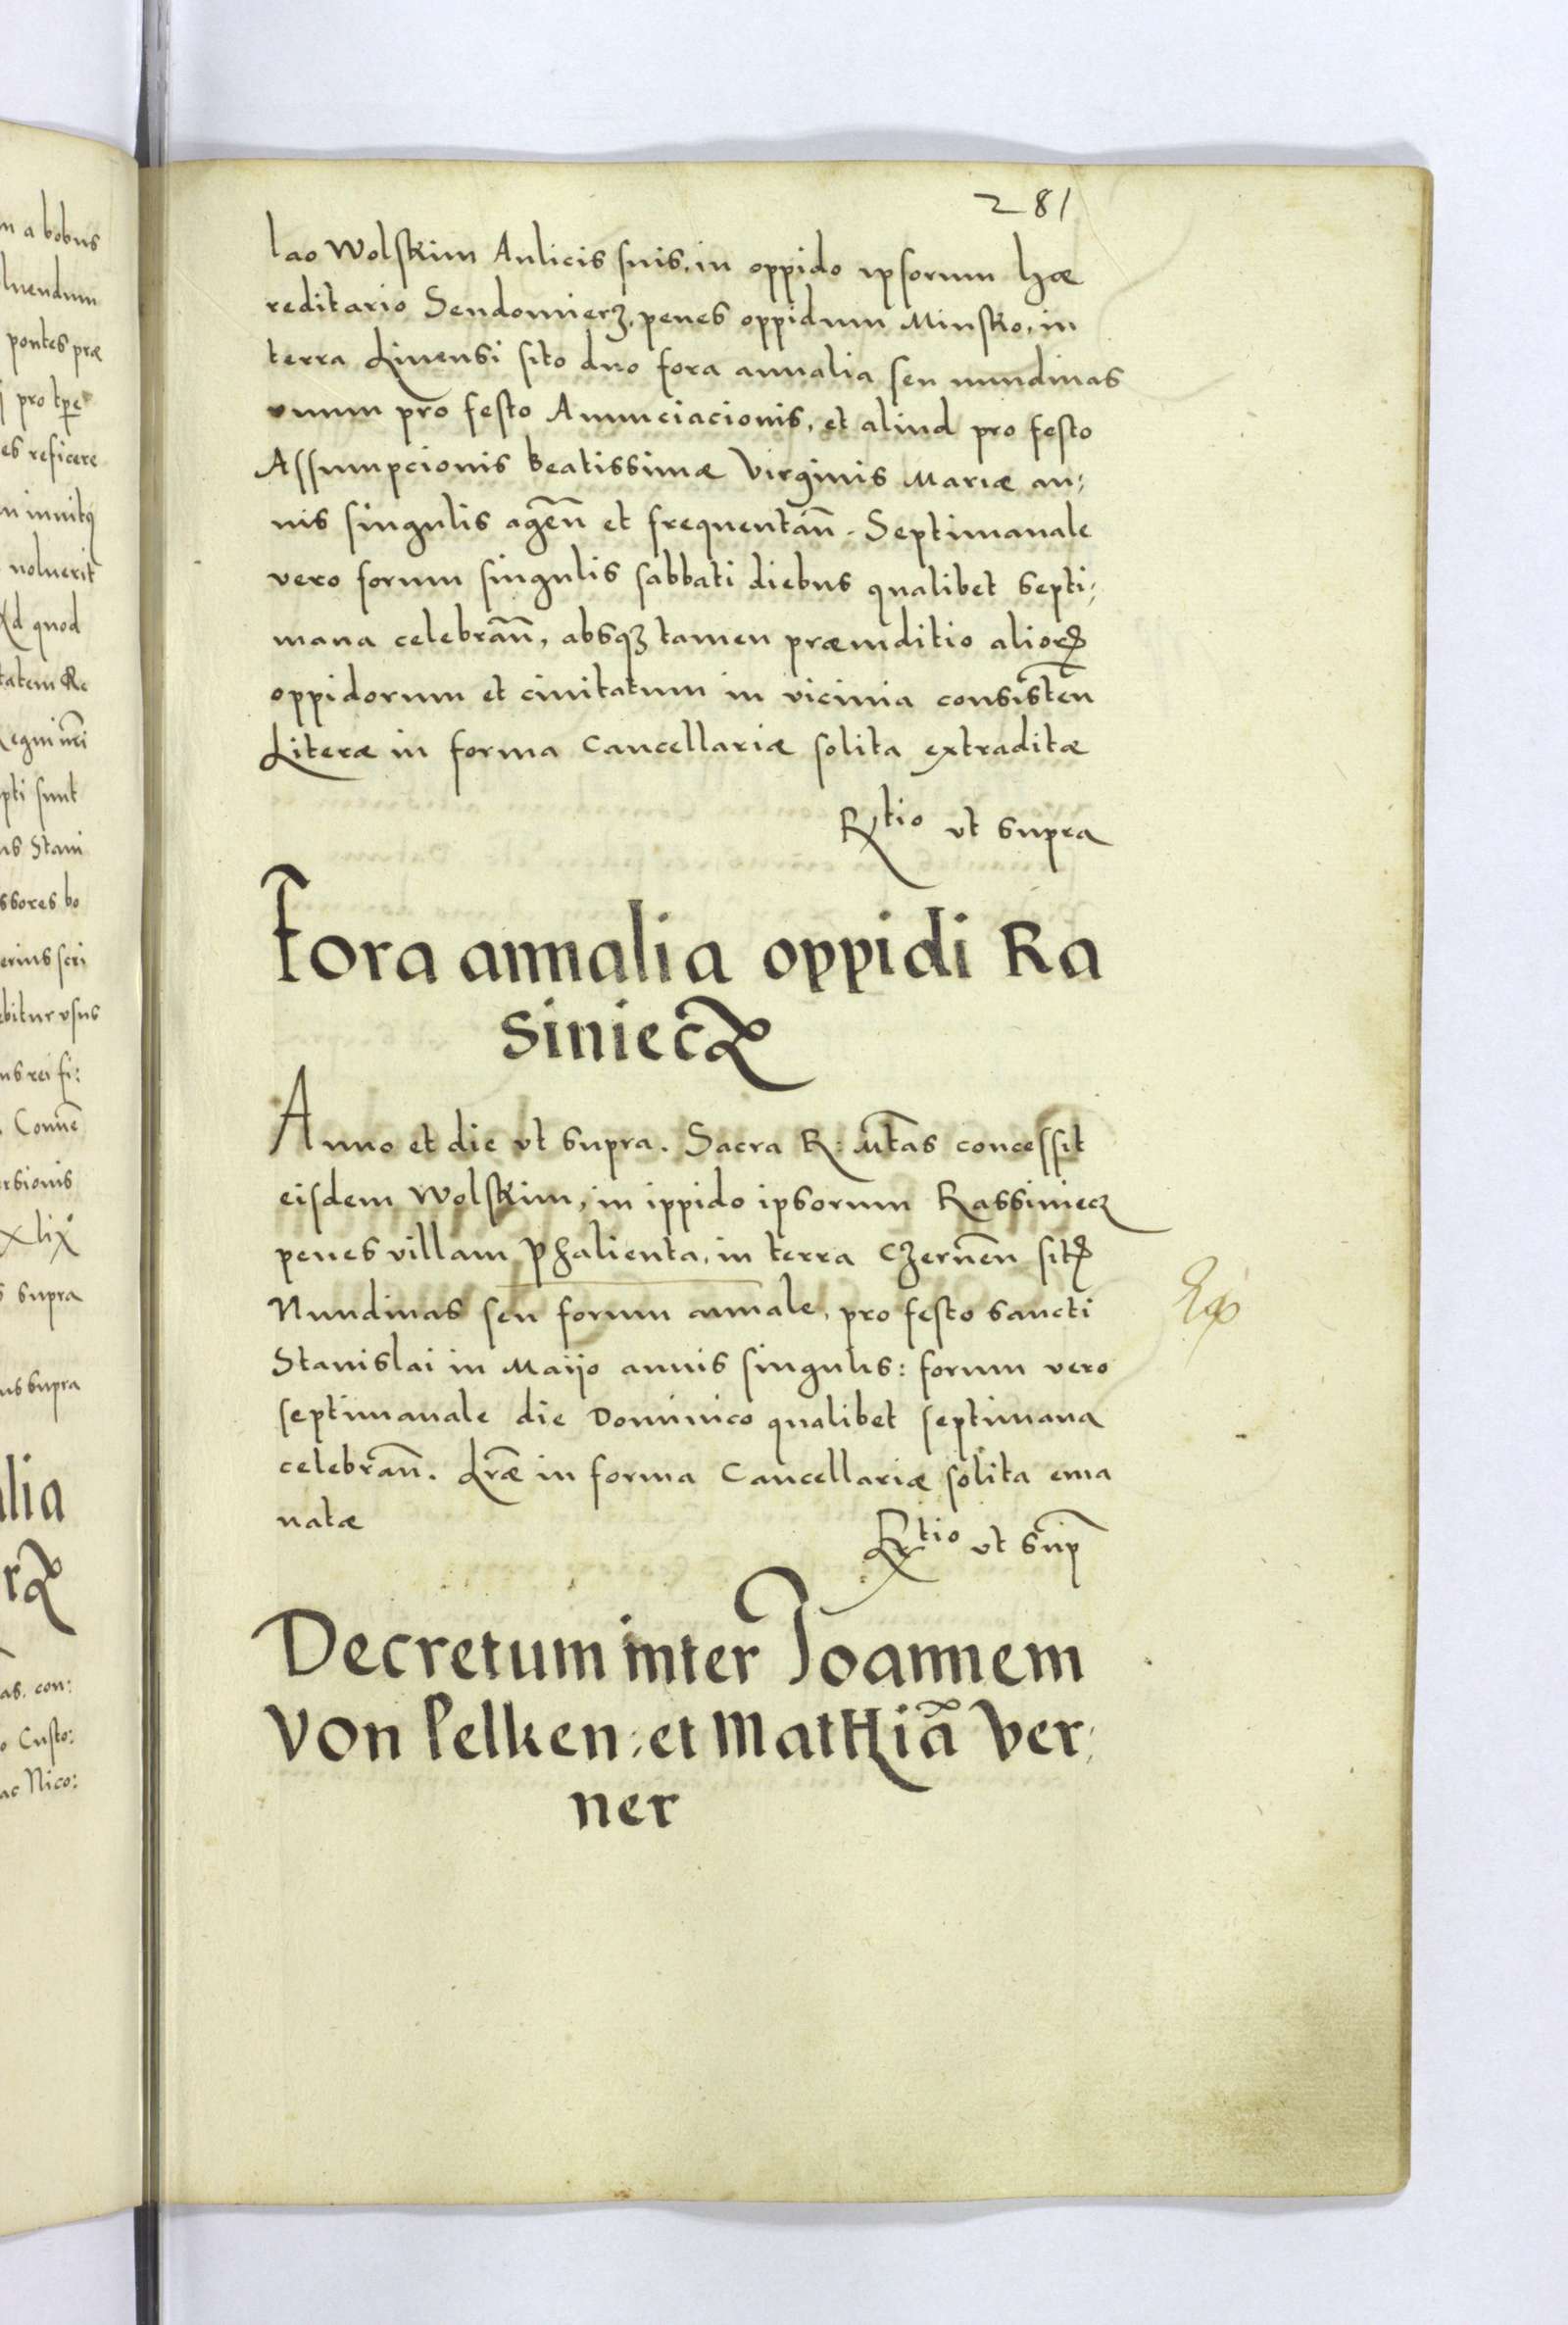 281
lao Wolskim Aulicis suis, in oppido ipsorum hæ
reditario Sendomierz, penes oppidum Minsko, in
terra Livensi sito duo fora annalia seu nundinas
vnum pro festo Anunciacionis, et aliud pro festo
Assumpcionis beatissimæ Virginis Mariæ an;
nis singulis agen̄ et frequentan̄. Septimanale
vero forum singulis sabbati diebus qualibet septi;
mana celebran̄, absqꝫ tamen præiuditio alioꝝ
oppidorum et ciuitatum in vicinia consisten̄
Literæ in forma Cancellariæ solita extraditæ
Rtio vt supra
Fora annalia oppidi Ra
siniecz
Anno et die vt supra. Sacra R: Mtas concessit
eisdem Wolskim, in ippido ipsorum Rassiniecz
penes villam Phalienta, in terra Czernen̄
Nundinas seu forum annale, pro festo sancti
Stanislai in Maijo annis singulis: forum vero
septimanale die Dominico qualibet septimana
celebran̄. Lr̄æ in forma Cancellariæ solita ema
natæ
Rtio vt sup̄
Decretum inter Joannem
von Pelken, et Matthiā Ver;
ner
m a bobus
luendum
pontes præ
pro tpe
es reficere
uoluerit
quod
tatem Re
pti sunt
us Stani
ssores bo
erius scri
ebitur vsus
us rei fi:
Conuē
rsionis
xlix
supra
us supra
lia
rz
as. con:
o Custo:
ac Nico: